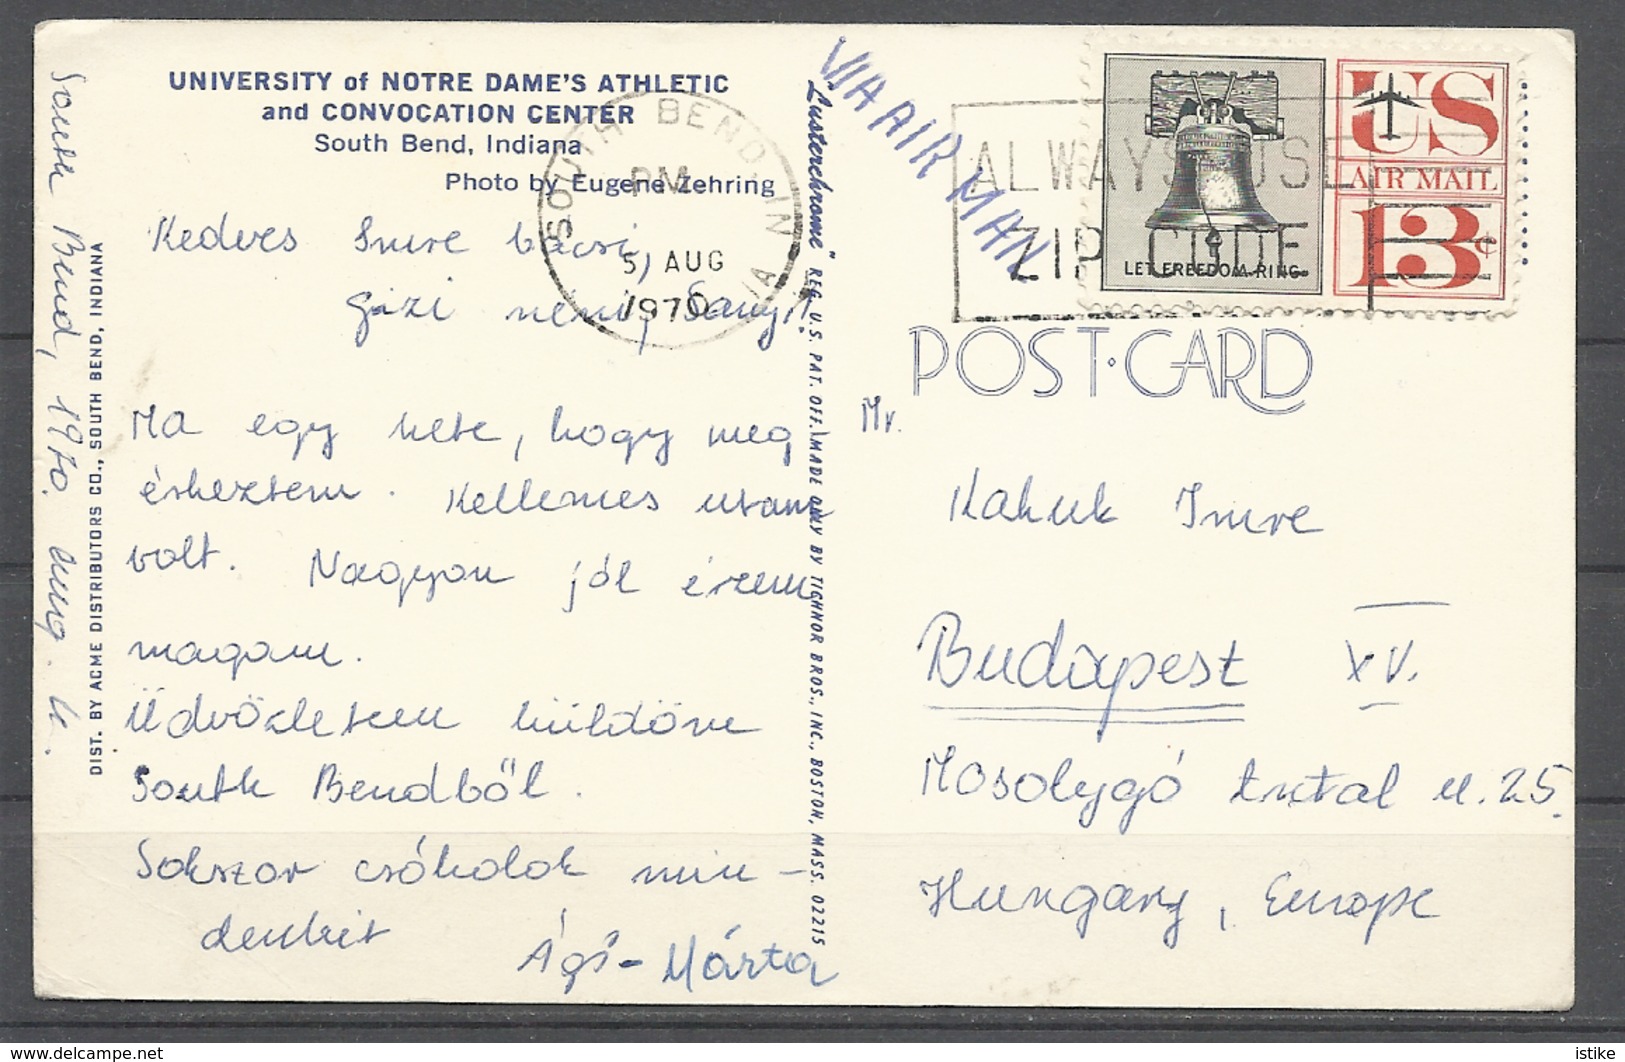 UNIVERSITY of NOTRE DAME'S ATHLETIC
and CONVOCATION CENTER
South Bend, Indiana
Photo by Eugene Zehring
Kedves Imre bácsi,
Gizi néni, Sanyi!
Ma egy hete, hogy meg
érkeztem. Kellemes utam
volt. Nagyon jól érzem
magam.
Üdvözletem küldöm
South Bendből.
Sokszor csókolok min-
denkit
Ági-Márta
South Bend, 1970. aug. 4.
DIST. BY ACME DISTRIBUTORS CO., SOUTH BEND, INDIANA
"Lusterchrome" REG. U.S. PAT. OFF. MADE ONLY BY TICHNOR BROS., INC., BOSTON, MASS. 02215
SOUTH BEND, IN
PM
5 AUG
1970
VIA AIR MAIL
ALWAYS USE
ZIP CODE
LET FREEDOM RING
US
AIR MAIL
13c
POST·CARD
Mr.
Kakuk Imre
Budapest XV.
Mosolygó Antal u. 25.
Hungary, Europe
istike